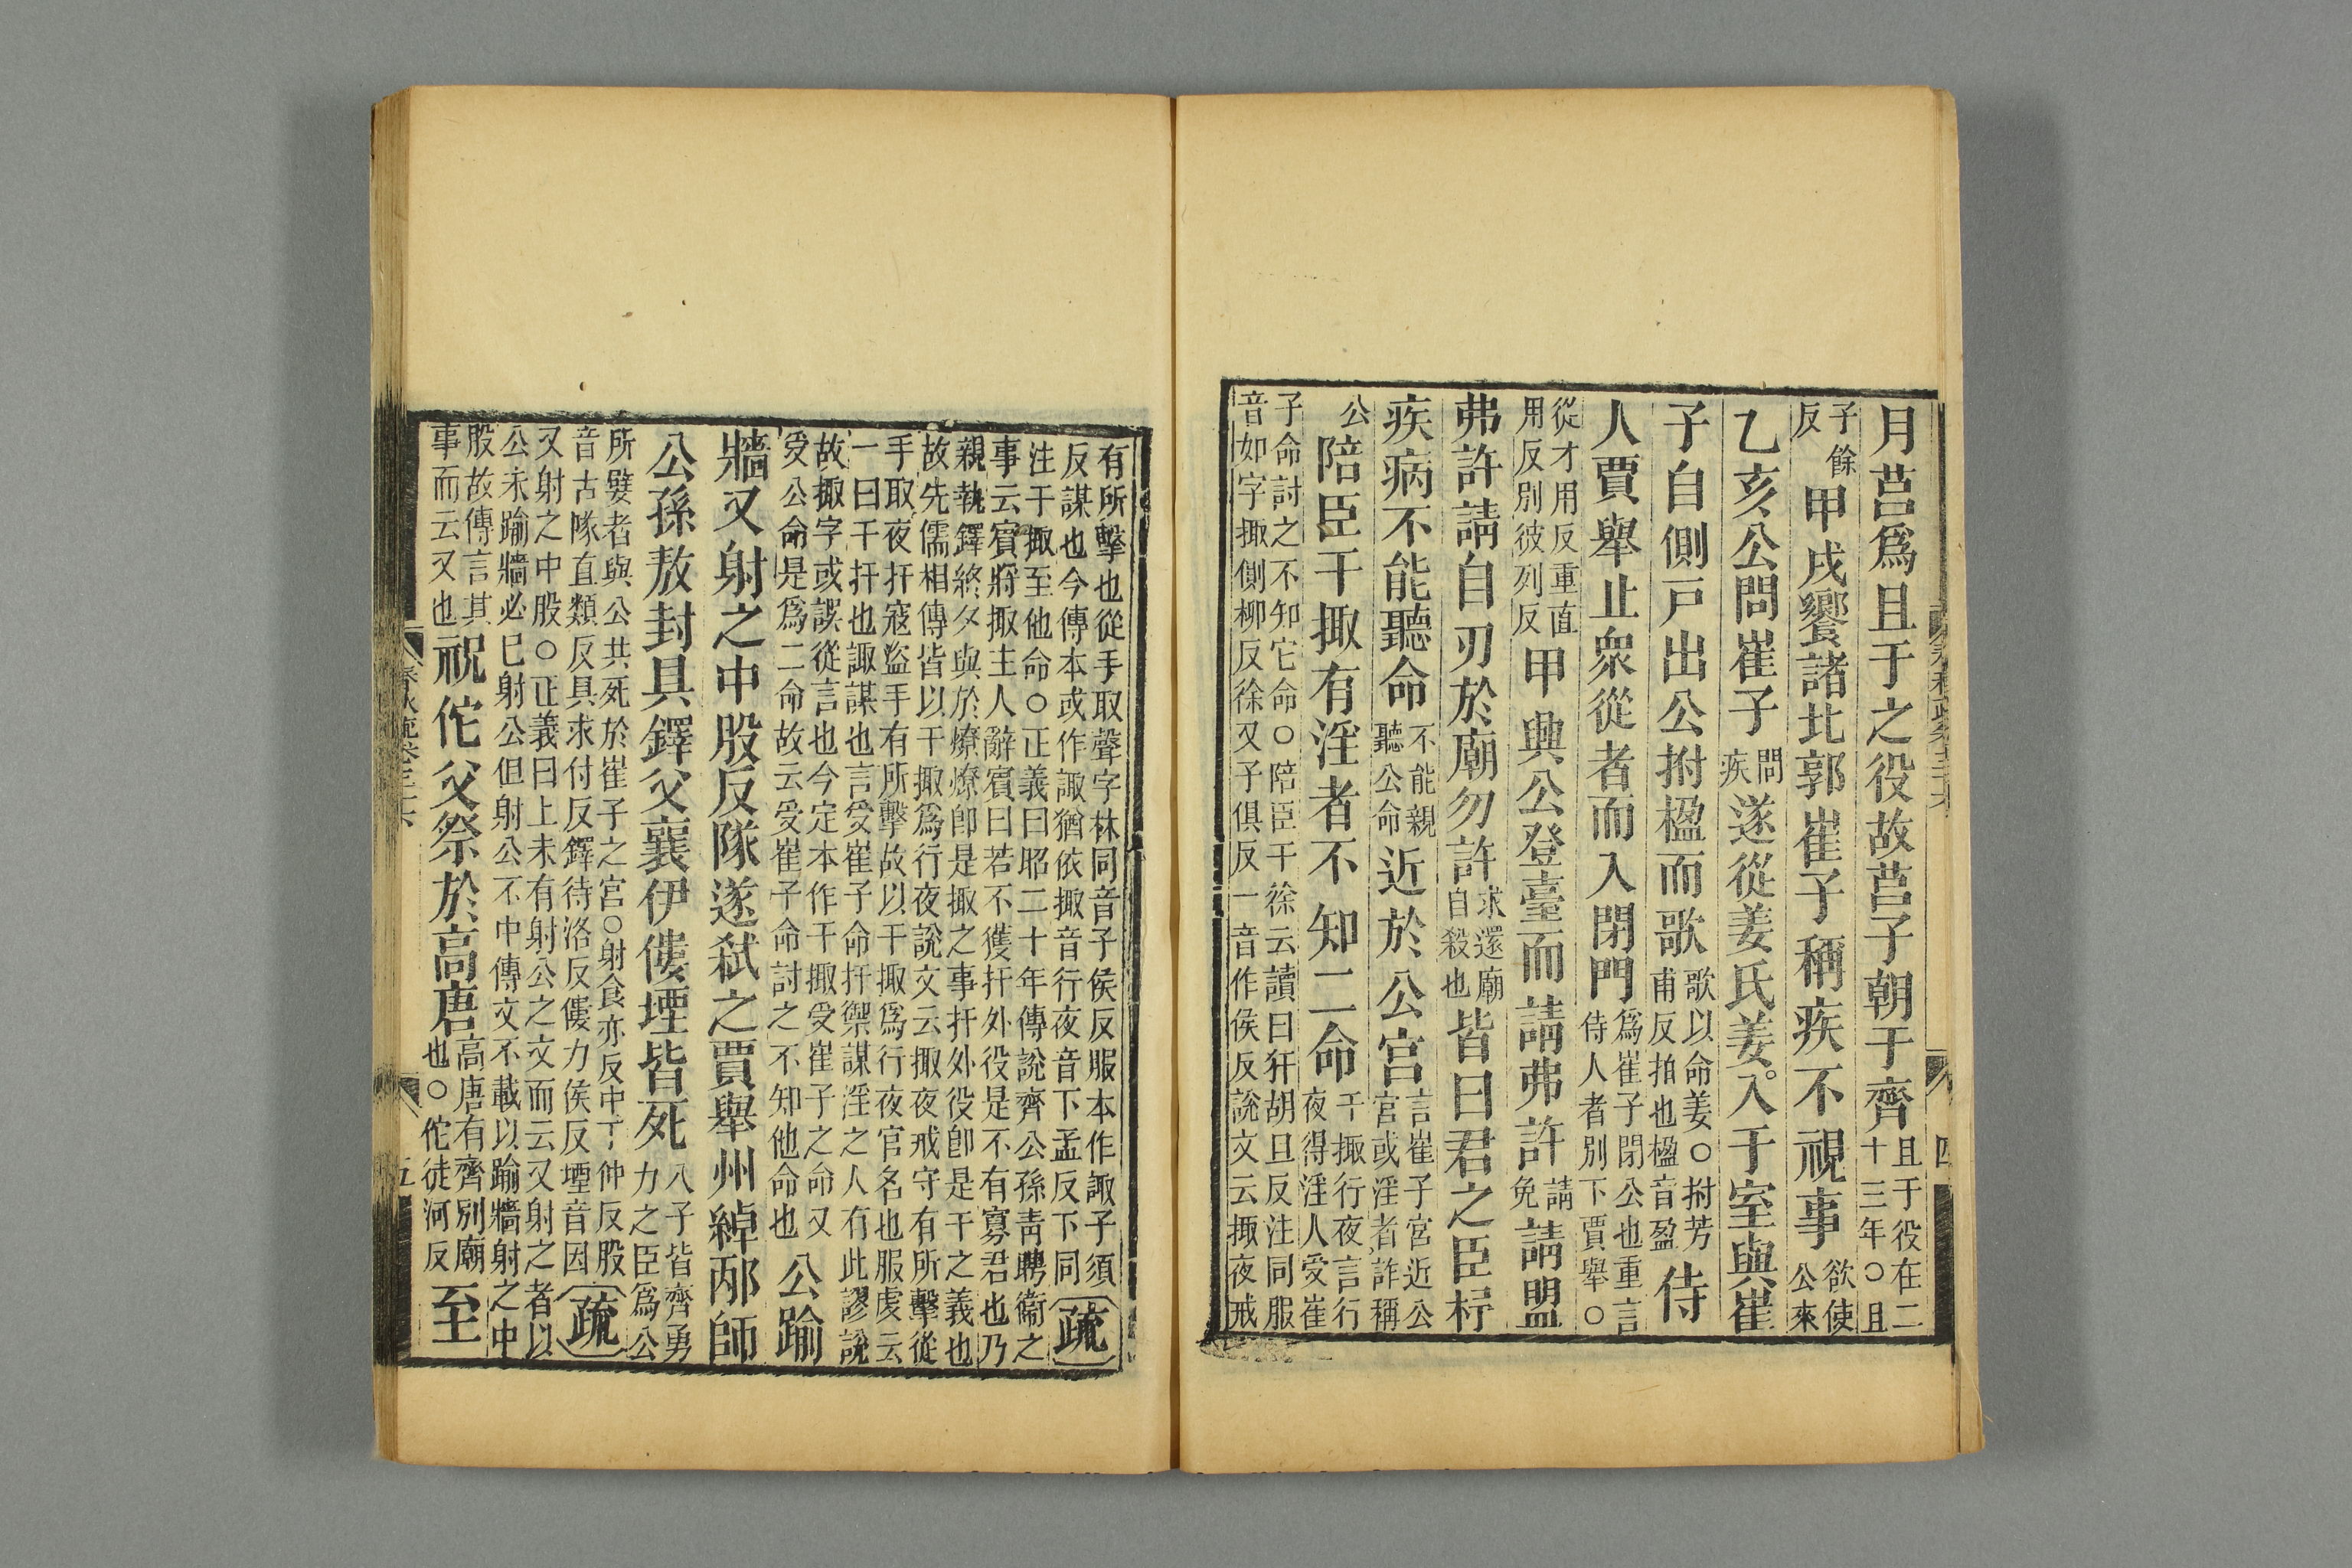 月莒爲且于之役故莒子朝于齊且于役在二十三年○且
子餘反甲戌饗諸北郭崔子稱疾不視事欲使公來
乙亥公問崔子問疾遂從姜氏姜入于室與崔
子自側戶出公拊楹而歌歌以命姜○拊芳甫反拍也楹音盈侍
人賈舉止衆從者而入閉門爲崔子閉公也重言侍人者別下賈舉○
從才用反重直用反別彼列反甲興公登臺而請弗許請免請盟
弗許請自刃於廟勿許求還廟自殺也皆曰君之臣杼
疾病不能聽命不能親聽公命近於公宮言崔子宮近公宮或淫者詐稱
公陪臣干掫有淫者不知二命干掫行夜言行夜得淫人受崔
子命討之不知它命○陪臣干徐云讀曰犴胡旦反注同服
音如字掫側柳反徐又子俱反一音作侯反說文云掫夜戒
有所擊也從手取聲字林同音子侯反服本作諏子須
反謀也今傳本或作諏猶依掫音行夜音下孟反下同疏
注干掫至他命○正義曰昭二十年傳說齊公孫青聘衞之
事云賓將掫主人辭賓曰若不獲扞外役是不有寡君也乃
親執鐸終夕與於燎燎卽是掫之事扞外役卽是干之義也
故先儒相傳皆以干掫爲行夜說文云掫夜戒守有所擊從
手取夜扞寇盜手有所擊故以干掫爲行夜官名也服虔云
一曰干扞也諏謀也言受崔子命扞禦謀淫之人有此謬說
故掫字或誤從言也今定本作干掫受崔子之命又
受公命是爲二命故云受崔子命討之不知他命也公踰
牆又射之中股反隊遂弒之賈舉州綽邴師
公孫敖封具鐸父襄伊僂堙皆死八子皆齊勇力之臣爲公
所嬖者與公共死於崔子之宮○射食亦反中丁仲反股
音古隊直類反具求付反鐸待洛反僂力侯反堙音因疏
又射之中股○正義曰上未有射公之文而云又射之者以
公未踰牆必巳射公但射公不中傳文不載以踰牆射之中
股故傳言其
事而云又也祝佗父祭於高唐高唐有齊別廟也○佗徒河反至
春秋疏卷三十六
四
五